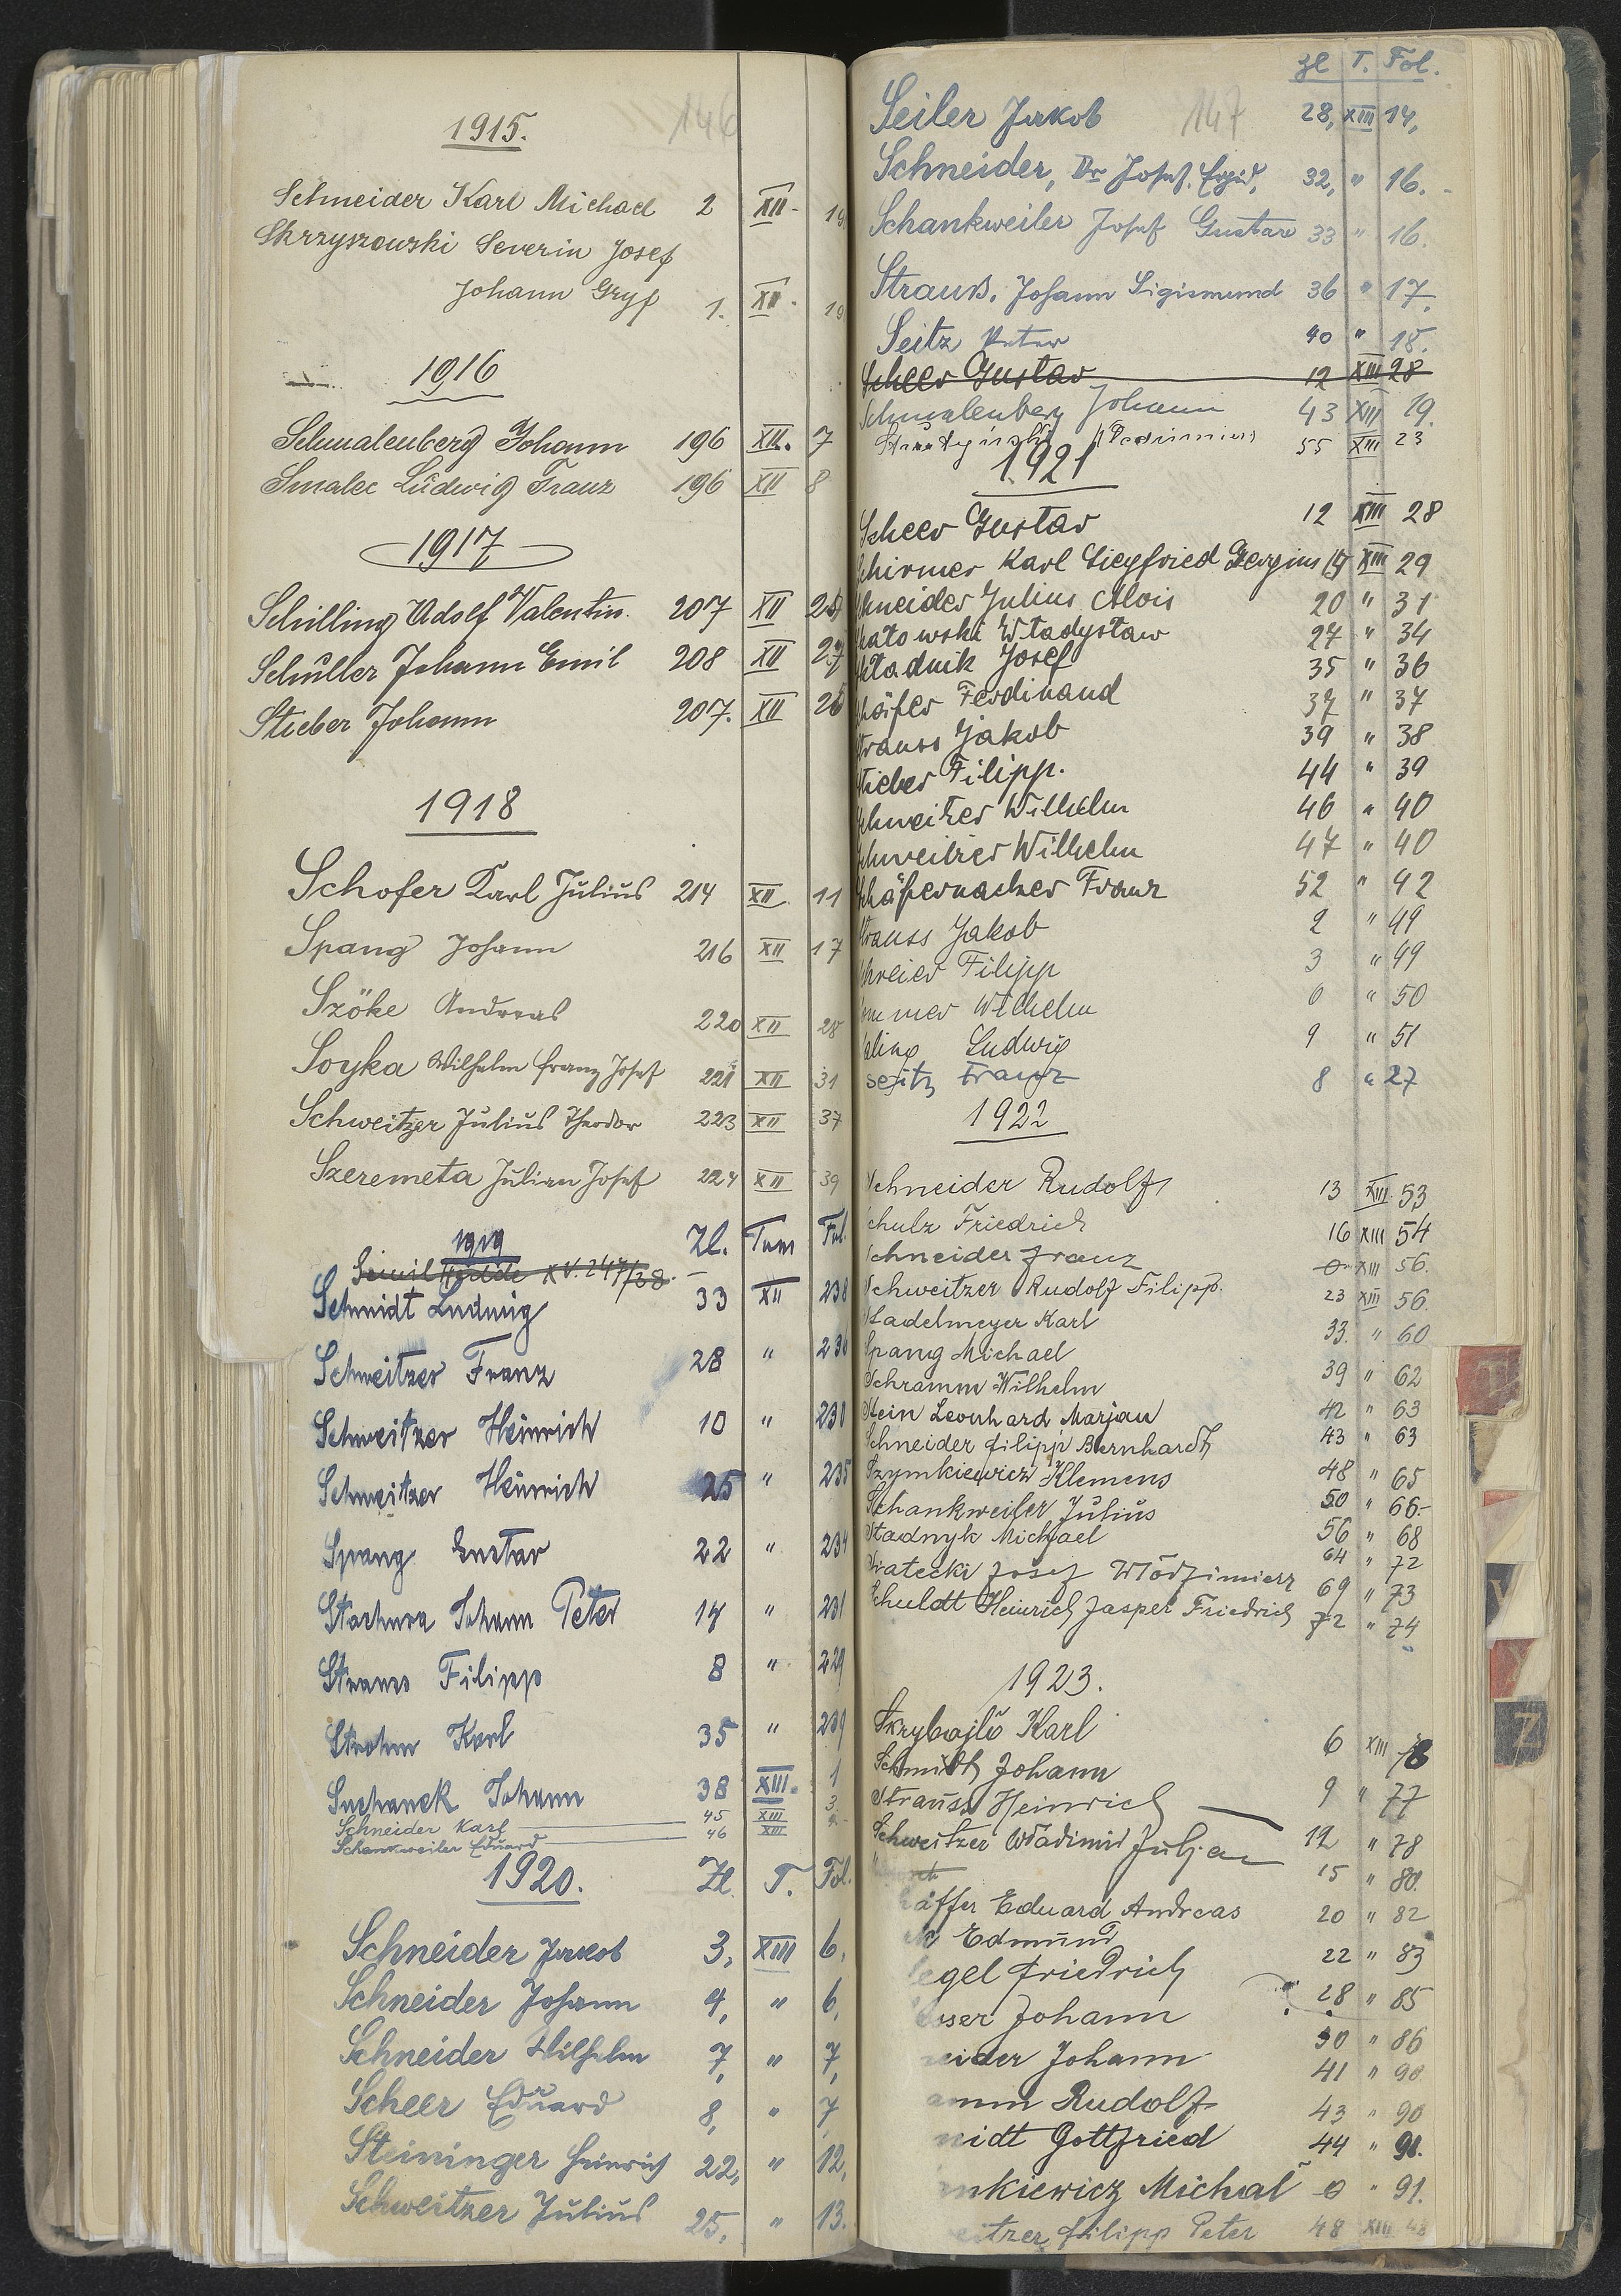 146
1915.
Schneider Karl Michael 2 XII 19
Skrzyszowski Severin Josef
Johann Gryf 1. XII 19
1916
Schmalenberg Johann 196 XII. 7
Smalec Ludwig Franz 196 XII 8
1917
Schilling Adolf Valentin 207 XII
Schuller Johann Emil 208 XII 27
Stieber Johann 207. XII 26
1918
Schofer Karl Julius 214 XII 11
Spang Johann 216 XII 17
Szöke Andreas 220 XII 28
Soyka Wilhelm Franz Josef 221 XII 31
Schweitzer Julius Theodor 223 XII 37
Szeremeta Julian Josef 224 XII 39
1919 Zl. Tom Fol.
XV. 247/38.
Schmidt Ludwig 33 XII 238
Schweitzer Franz 28 " 236
Schweitzer Heinrich 10 " 230
Schweitzer Heinrich 25 " 235
Spang Gustav 22 " 234
Stachura Johann Peter 17 " 231
Strauss Filipp 8 " 229
Strohm Karl 35 " 239
Suchanek Johann 38 XIII. 1
Schneider Karl 45 XIII 3
Schankweiler Eduard 46 XIII
1920. Zl. T. Fol.
Schneider Jakob 3, XIII 6,
Schneider Johann 4, " 6,
Schneider Wilhelm 7, " 7,
Scheer Eduard 8, " 7,
Steininger Heinrich 22, " 12,
Schweitzer Julius 25, " 13.
147
zl T. Fol.
Seiler Jakob 28, XIII 14,
Schneider, Dr Josef. Egid, 32, " 16.
Schankweiler Josef Gustav 33 " 16.
Strauß, Johann Sigismund 36 " 17.
Seitz Peter 40 " 18.
Scheer Gustav 12 XIII 28
Schmalenberg Johann 43 XIII 19.
55 XIII 23
1921
Scheer Gustav 12 XIII 28
chirmer Karl Siegfried Georgius 19 XIII 29
chneider Julius Alois 20 " 31
Władysław 27 " 34
Josef 35 " 36
chäfer Ferdinand 37 " 37
trauss Jakob 39 " 38
tieber Filipp. 44 " 39
chweitzer Wilhelm 46 " 40
chweitzer Wilhelm 47 " 40
chäfernacker Franz 52 " 42
trauss Jakob 2 " 49
chreier Filipp 3 " 49
ommer Wilhelm 6 " 50
Ludwig 9 " 51
seitz Franz 8 " 27
1922
Schneider Rudolf 13 XIII 53
Schulz Friedrich 16 XIII 54
Schneider Franz 0 XIII 56.
Schweitzer Rudolf Filipp. 23 XIII 56.
Stadelmeyer Karl 33. " 60
Spang Michael 39 " 62
Schramm Wilhelm 42 " 63
Stein Leonhard Marjan 43 " 63
Schneider Filipp Bernhardt 48 " 65
Szymkiewicz Klemens 50 " 66.
Schankweiler Julius 56 " 68
Stadnyk Michael 64 " 72
Josef Włodzimierz 69 " 73
Schuldt Heinrich Jasper Friedrich 72 " 74
1923.
Skrybajlo Karl 6 XIII
Schmidt Johann 9 " 77
Strauss Heinrich
Schweitzer Wladimir Juljan 12 " 78
15 " 80.
häffer Eduard Andreas 20 " 82
Edmund 22 " 83
egel Friedrich 28 " 85
sser Johann 30 " 86
neider Johann 41 " 90
amm Rudolf 43 " 90
midt Gottfried 44 " 91.
nkiewicz Michał 0 " 91.
eitzer Filipp Peter 48 XIII
T
Z